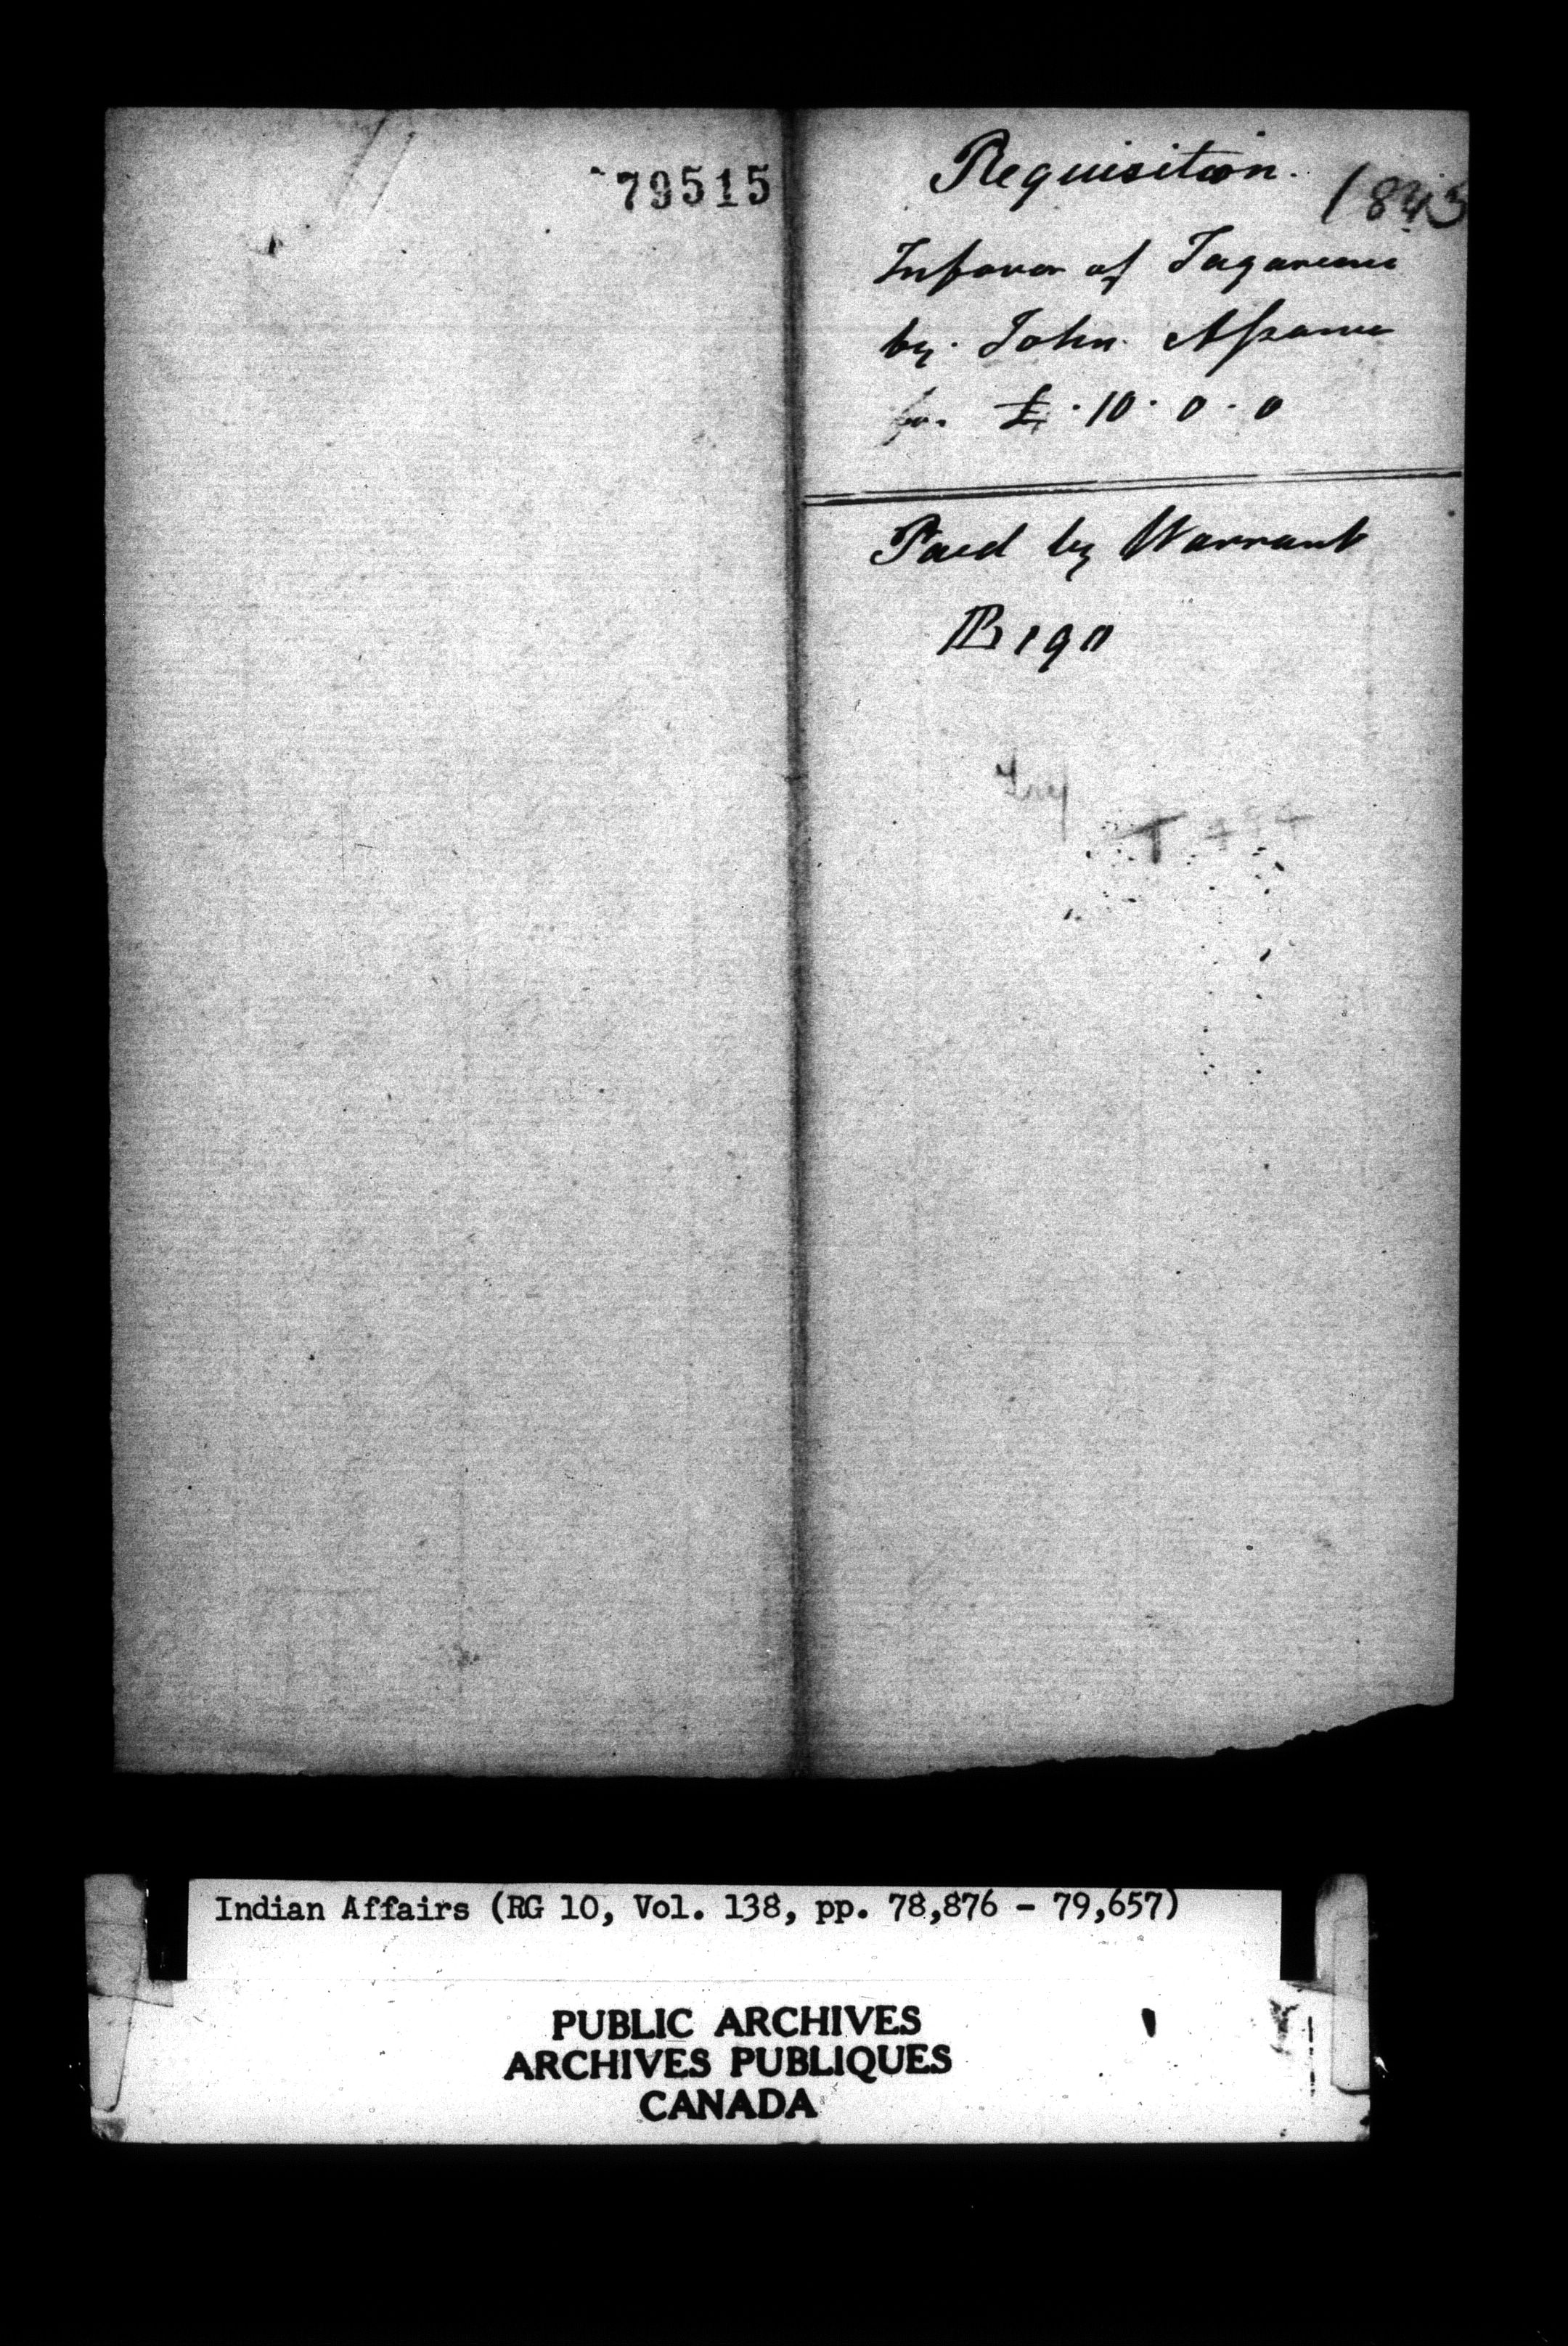 79515
Requisition.
1843
Infavor of
by John
for £.10.0.0
Paid by Warrant
B190
Indian Affairs (RG 10, Vol. 138, pp. 78,876 - 79,657)
PUBLIC ARCHIVES
ARCHIVES PUBLIQUES
CANADA